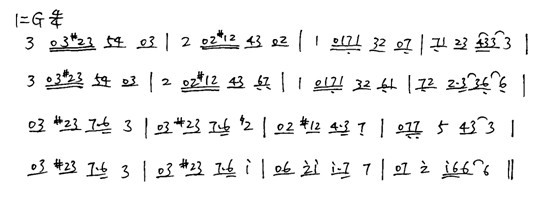 1=G 4/4
3 03#23 54 03 | 2 02#12 43 02 | 1 0171 32 07 | 71 23 433 3 |
3 03#23 54 03 | 2 02#12 43 67 | 1 0171 32 61 | 72 2·3 36 6 |
03 #23 7·6 3 | 03 #23 7·6 #2 | 02 #12 4·3 7 | 077 5 43 3 |
03 #23 7·6 3 | 03 #23 7·6 i | 06 2i i·7 7 | 07 2 i66 6 ||